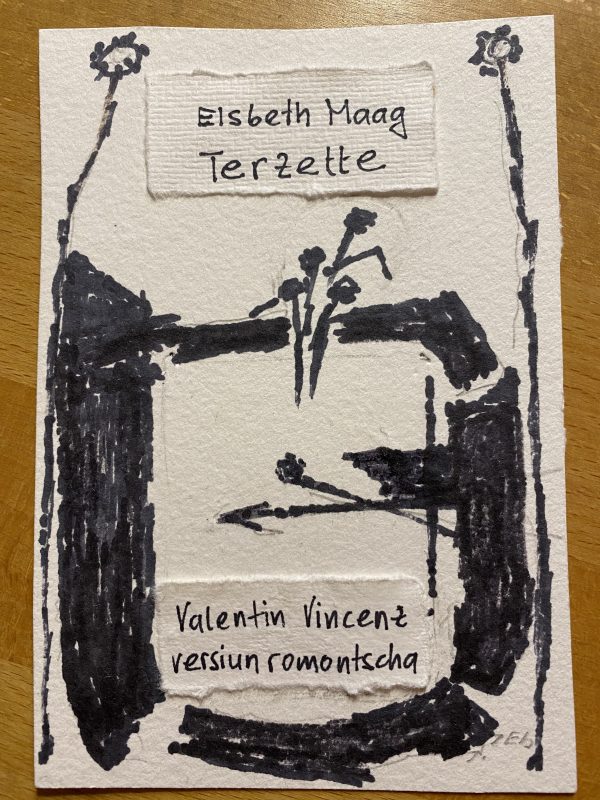 Elsbeth Maag
Terzette
Valentin Vincenz
versiun romontscha